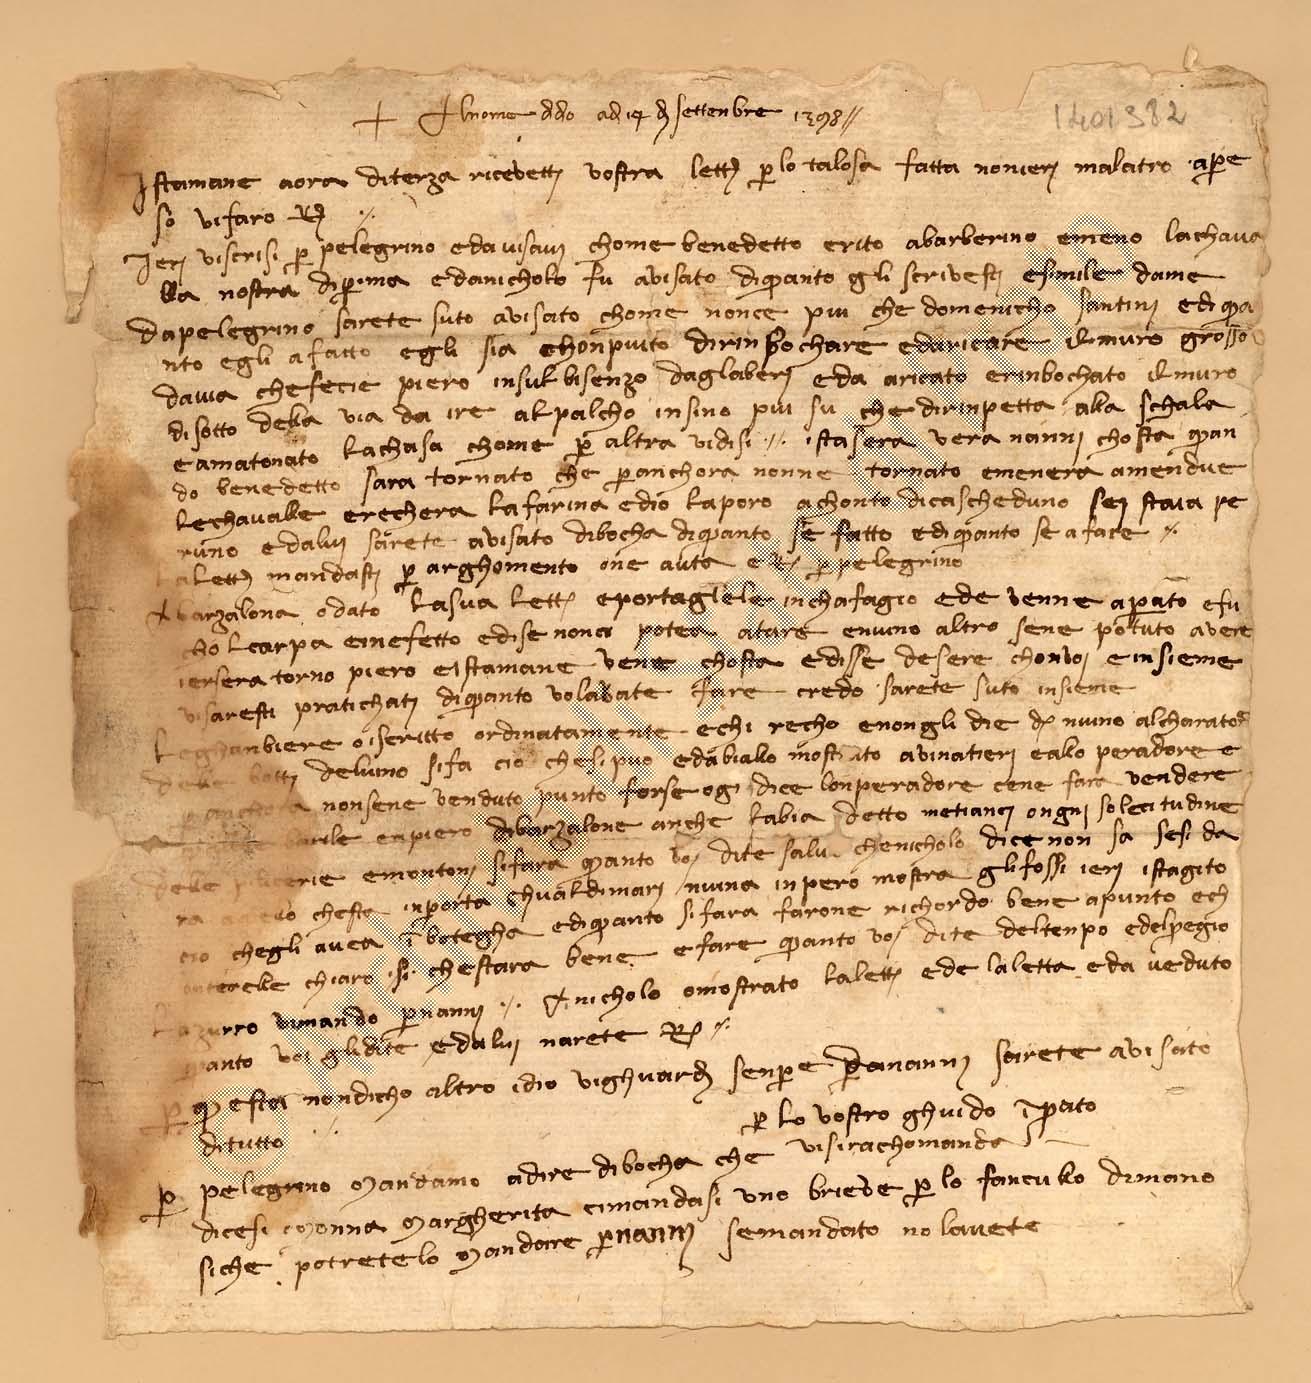 + Al nome d'Iddo adì 14 dj settenbre 1398 //
1401382
Istamane a ora di terza ricevettj vostra lettj per lo talosa fatta non ierj malatro apre
so vi faro Rj ./.
Ierj viscrisi per pelegrino edavisavj chome benedetto erito abarberino emeno lachava
lla nostra diprima edanicholo fu avisato diquanto gli scrivestj esimile dame
Dapelegrino sarete suto avisato chome nonce piu che domenicho santinj ediqua
nto egli afatto egli sia chonpiuto dirinbochare edaricare ilmuro grosso
davia chefecie piero insulbisenzo daglaberj eda aricato erinbochato ilmuro
disotto della via da ire alpalcho insino piu su che dirinpetto alla schala
eamatonato lachasa chome per altra vidisi ./. istasera verra nannj chosta quan
do benedetto sara tornato che peranchora nonne tornato emenera amendue
lechavalle erechera lafarina edio laporo achonto dicascheduno sej staia pe
runo edaluj sarete avisato dibocha diquanto se fatto ediquanto se afare ./.
lalettj mandastj per arghomento one auta e Rj per pelegrino
Abarzalona odato lasua lettj eportagliele inchafagio ede venne aprato efu
cholcarpa einefetto edise nonci potea atare enuino altro sene potuto avere
iersera torno piero eistamane vene chosta edisse desere chonvoj einsieme
visaresti pratichatj diquanto volavate fare credo sarete suto insieme
Leghanbiere oiscritto ordinatamente echi recho enongli die dj niuno alcharatore
delle bottj deluino sifa cio chesipuo edabiallo mostrato avinatierj eallo peradore e
peranchora nonsene venduto punto forse ogi dice lonperadore cene fara vendere
barile enpiero dibarzalone anche labia detto metiancj ongnj solecitudine
delle emontonj sifara quanto voj dite salvo chenicholo dice non sa sesi da
ra chesto inporta ghualdimarj niuna inpero mostra glifossi ierj istagito
cio chegli avea ibotegha ediquanto sifara farone richordo bene apunto ech
onterelle chiaro si chestara bene efare quanto voj dite deltenpo edelpregio
Lazurro vimando per nannj ./. Anicholo omostrato lalettj ede laletta eda veduto
quanto voi glidite edaluj narete Rj ./.
per questa nondicho altro idio vighuardj senpre danannj sarete avisato
ditutto ./.
per lo vostro ghuido iprato
visirachomanda
per pelegrino mandamo adire dibocha che
dicesi monna margherita cimandasi uno brieve per lo fanciullo dimano
siche potretelo mandare per nannj semandato nolavete